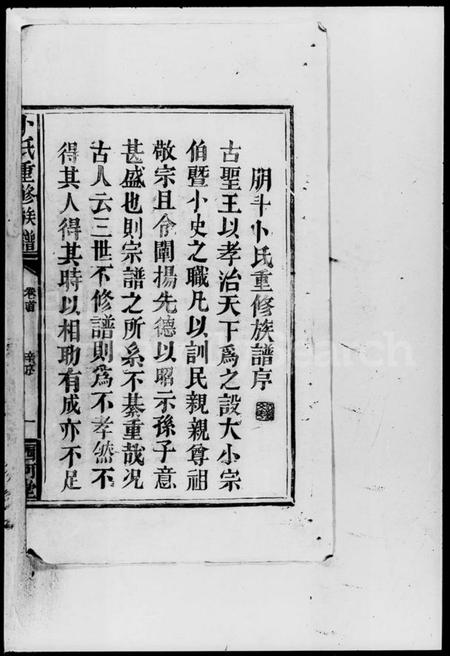 朋斗卜氏重修族譜序
古聖王以孝治天下爲之設大小宗
伯暨小史之職凡以訓民親親尊祖
敬宗且令闡揚先德以昭示孫子意
甚盛也則宗譜之所系不綦重哉况
古人云三世不修譜則爲不孝然不
得其人得其時以相助有成亦不足
卜氏重修族譜
卷首
序
一
西河堂